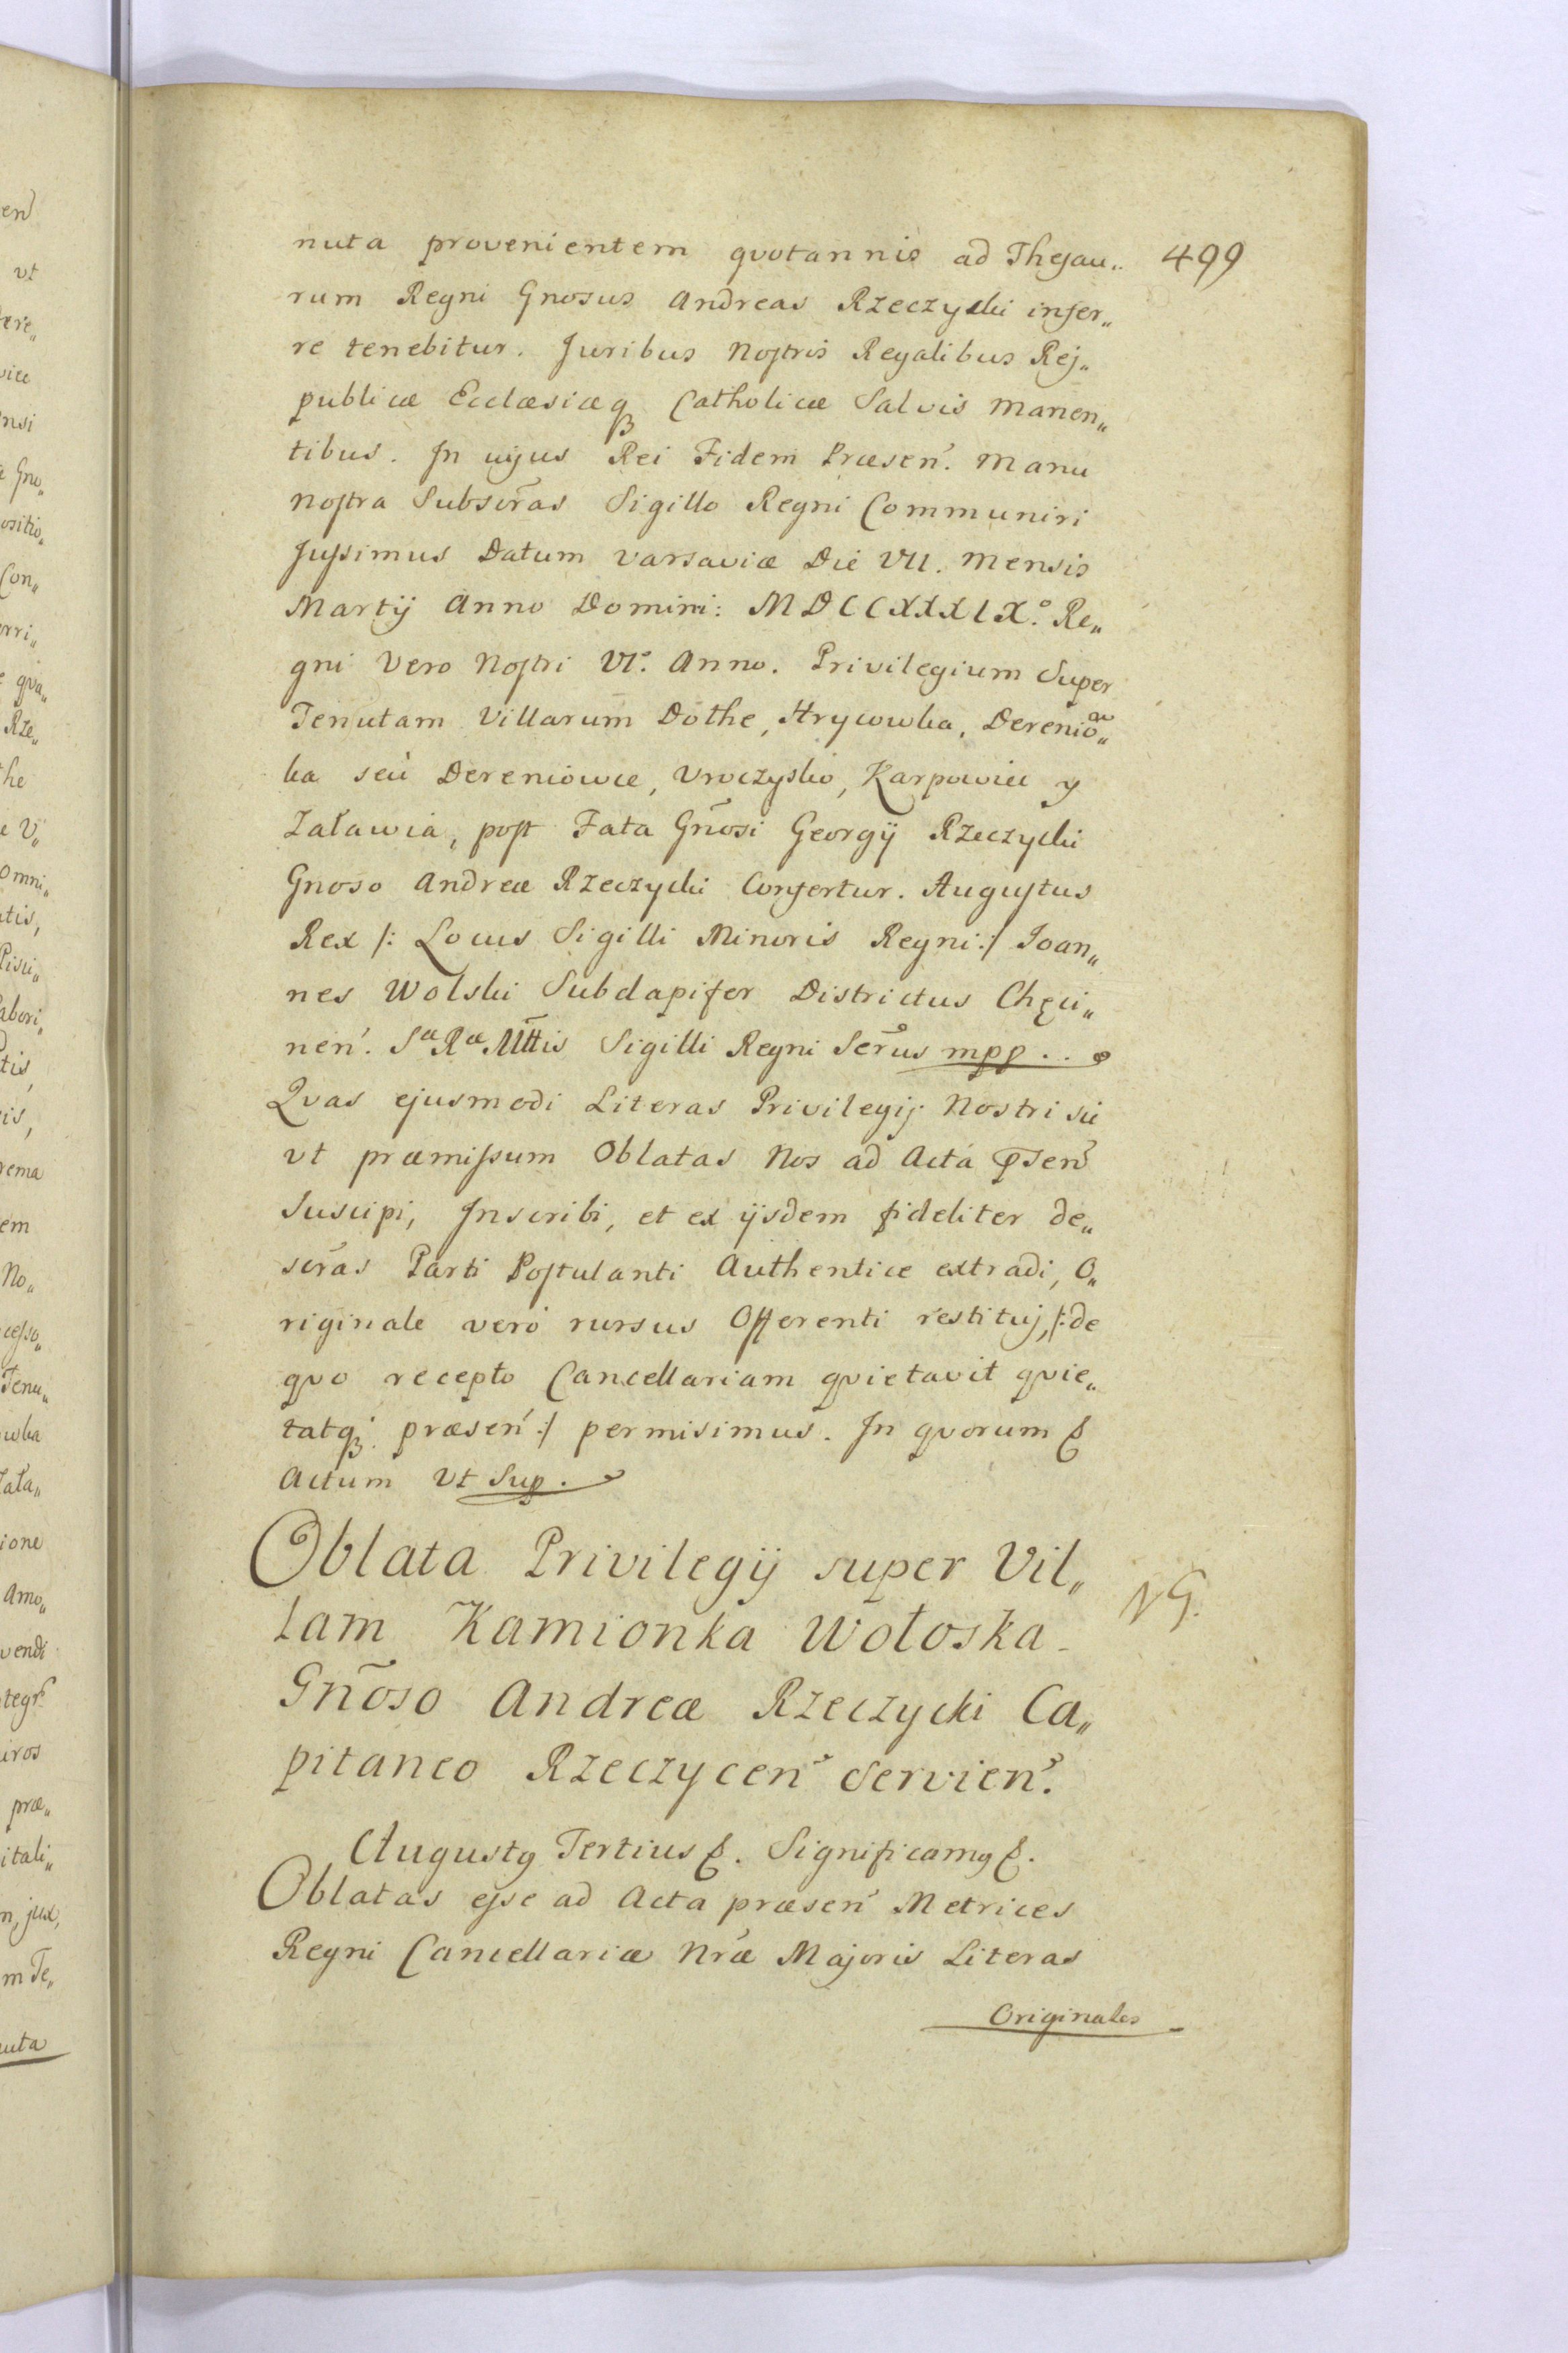 499
nuta provenientem quotannis ad Thesau„
rum Regni Gnosus Andreas Rzeczycki infer„
re tenebitur. Juribus Nostris Regalibus Rej„
publicæ Ecclæsiæq Catholicæ Salvis manen„
tibus. In cujus Rei Fidem Præsen. Manu
Nostra Subscrãs Sigillo Regni Communiri
Jussimus Datum Varsaviæ Die VII. Mensis
Martij Anno Domini: MDCCXXXIX.° Re„
gni Vero Nostri VI.° Anno. Privilegium Super
Tenutam Villarum Dothe, Hrycowka, Derenio„
ka seu Dereniowce, Uroczysko, Karpowice y
Załawia, post Fata Gnõsi Georgij Rzeczycki
Gnoso Andreæ Rzeczycki Confertur. Augustus
Rex /: Locus Sigilli Minoris Regni :/ Joan„
nes Wolski Subdapifer Districtus Chęci„
nen. Sæ Ræ Mttis Sigilli Regni Serus mpp..
Quas ejusmodi Literas Privilegij Nostri sic
ut præmissum Oblatas Nos ad Acta Psen
Suscipi, Inscribi, et ex ijsdem fideliter de„
scrãs Parti Postulanti Authentice extradi, O„
riginale vero rursus Offerenti restituj, /: de
quo recepto Cancellariam quietavit quie„
tatq præsen :/ permisimus. In quorum &
Actum Ut Sup.
Oblata Privilegij super Vil„
lam Kamionka Wołoska
Gnõso Andreæ Rzeczycki Ca„
pitaneo Rzeczycen Servien.
NG.
Augustq Tertius &. Significamq &.
Oblatas esse ad Acta præsen Metrices
Regni Cancellariæ Nræ Majoris Literas
Originales